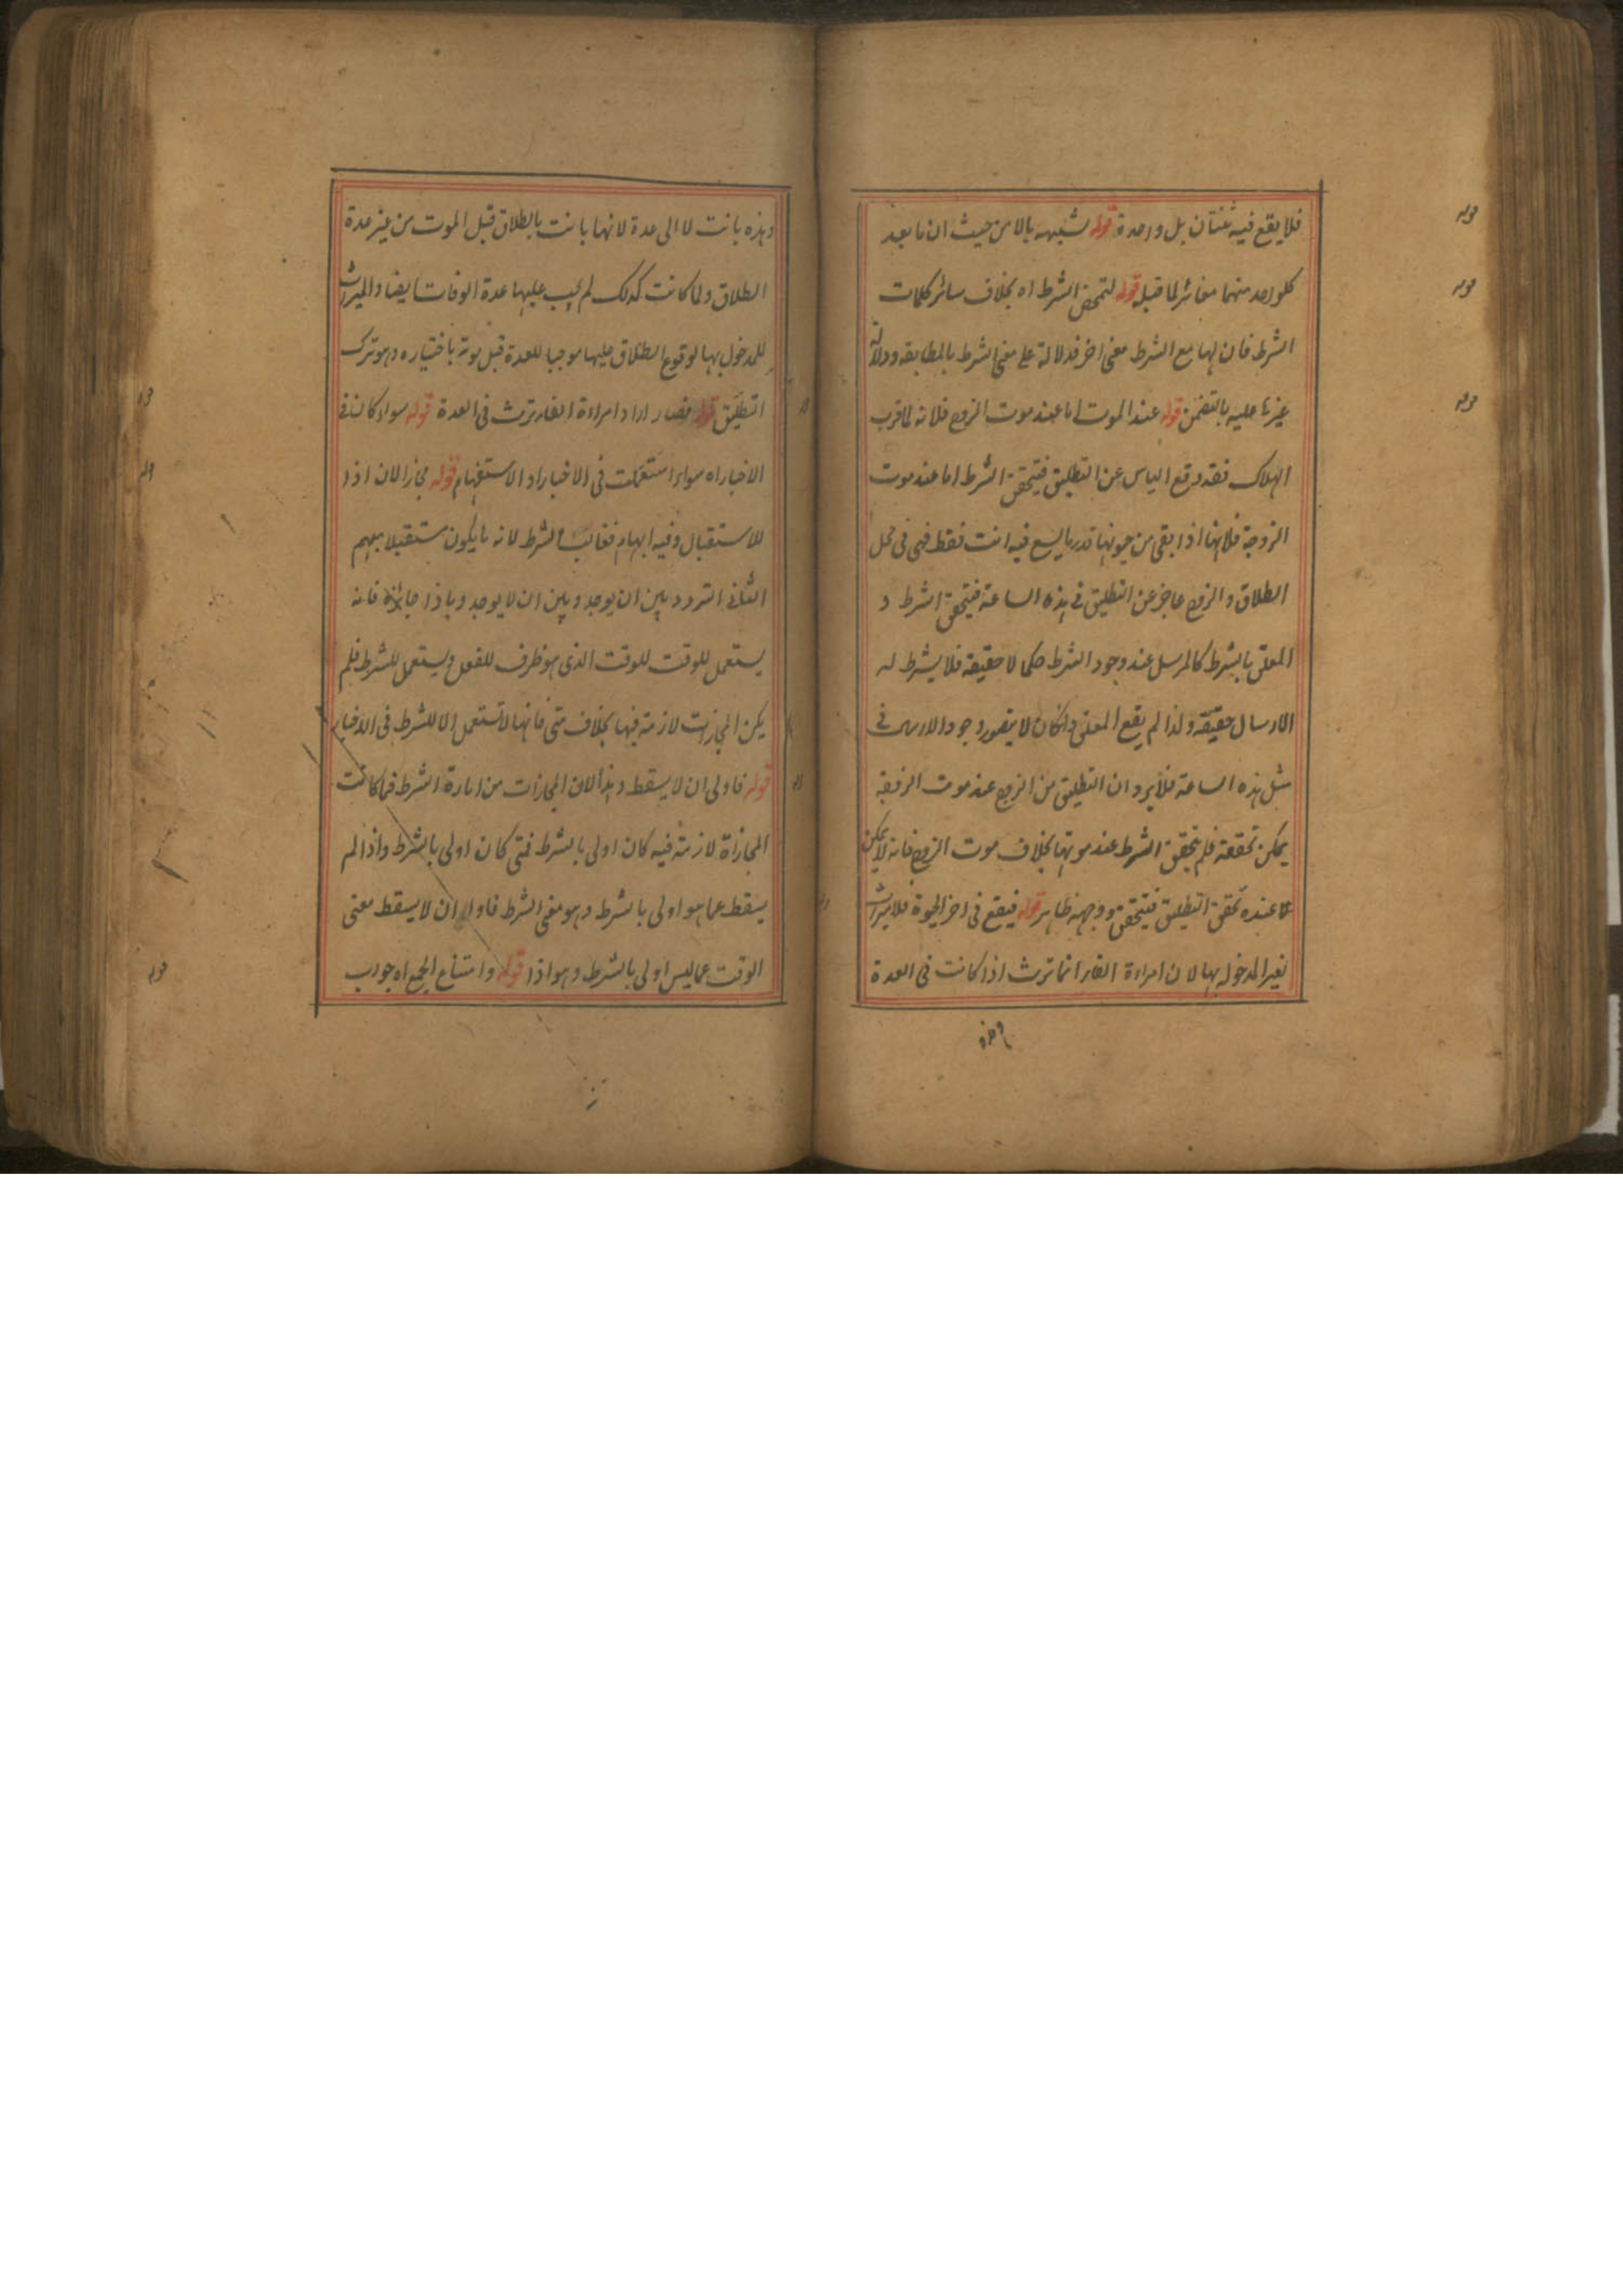 فلا يقع فيه ثنتان بل واحدة قوله شبيهه بالا من حيث ان ما بعد
كلواحد منهما مغائر لما قبله قوله لتمحض الشرط اه بخلاف سائر كلمات
الشرط فان لها مع الشرط معنى اخر فدلالة على معنى الشرط بالمطابقه ودلالة
غيرها عليه بالتضمن قوله عند الموت اما عند موت الزوج فلانه لما قرب
الهلاك فقد وقع الياس عن التطليق فيتحقق الشرط اما عند موت
الزوجة فلانها اذا بقى من حيوتها قدر ما يسع فيه انت فقط فهى فى محل
الطلاق و الزوج عاجز عن التطليق فى هذه الساعة فيتحقق الشرط و
المعلق بالشرط كالمرسل عند وجود الشرط حكما لا حقيقة فلا يشرط له
الارسال حقيقة ولذا لم يقع المعلق وانكان لا يتصور وجود الارسال فى
مثل هذه الساعة فلا يرد ان التطليق من الزوج عند موت الزوجة
يمكن تحققه فلم يتحقق الشرط عند موتها بخلاف موت الزوج فانه لا يمكن
عنده تحقق التطليق فيتحقق ووجهه ظاهر قوله فيقع فى اخر الحيوة فلا ميراث
لغير المدخول بها لان امراءة الفار انما ترث اذا كانت فى العدة
وهذه
وهذه بانت لا الى عدة لانها بانت بالطلاق قبل الموت من غير عدة
الطلاق ولما كانت كذلك لم يجب عليها عدة الوفات ايضا والميراث
للمدخول بها لوقوع الطلاق عليها موجبا للعدة قبل موته باختياره وهو ترك
التطليق قوله فصار ارا د امراءة الفار ترث فى العدة قوله سواء كان فى
الاخبار اه سواء استعملت فى الاخبار او الاستفهام قوله مجاز الان اذا
للاستقبال وفيه ابهام فغالب الشرط لانه ما يكون مستقبلا مبهم
الثانى التردد بين ان يوجد وبين ان لا يوجد و باذا جائزة فانه
يستعمل للوقت للوقت الذى هو ظرف للفعل ويستعمل للشرط فلم
يكن المجازات لازمة فيها بخلاف متى فانها لا تستعمل الا للشرط فى الاخبار
قوله فاولى ان لا يسقط وهذا لان المجازات من امارة الشرط فما كانت
المجازاة لازمة فيه كان اولى بالشرط فمتى كان اولى بالشرط واذا لم
يسقط عما هو اولى بالشرط وهو معنى الشرط فاولى ان لا يسقط معنى
الوقت عما ليس اولى بالشرط وهو اذا قوله وامتناع الجمع اه جواب